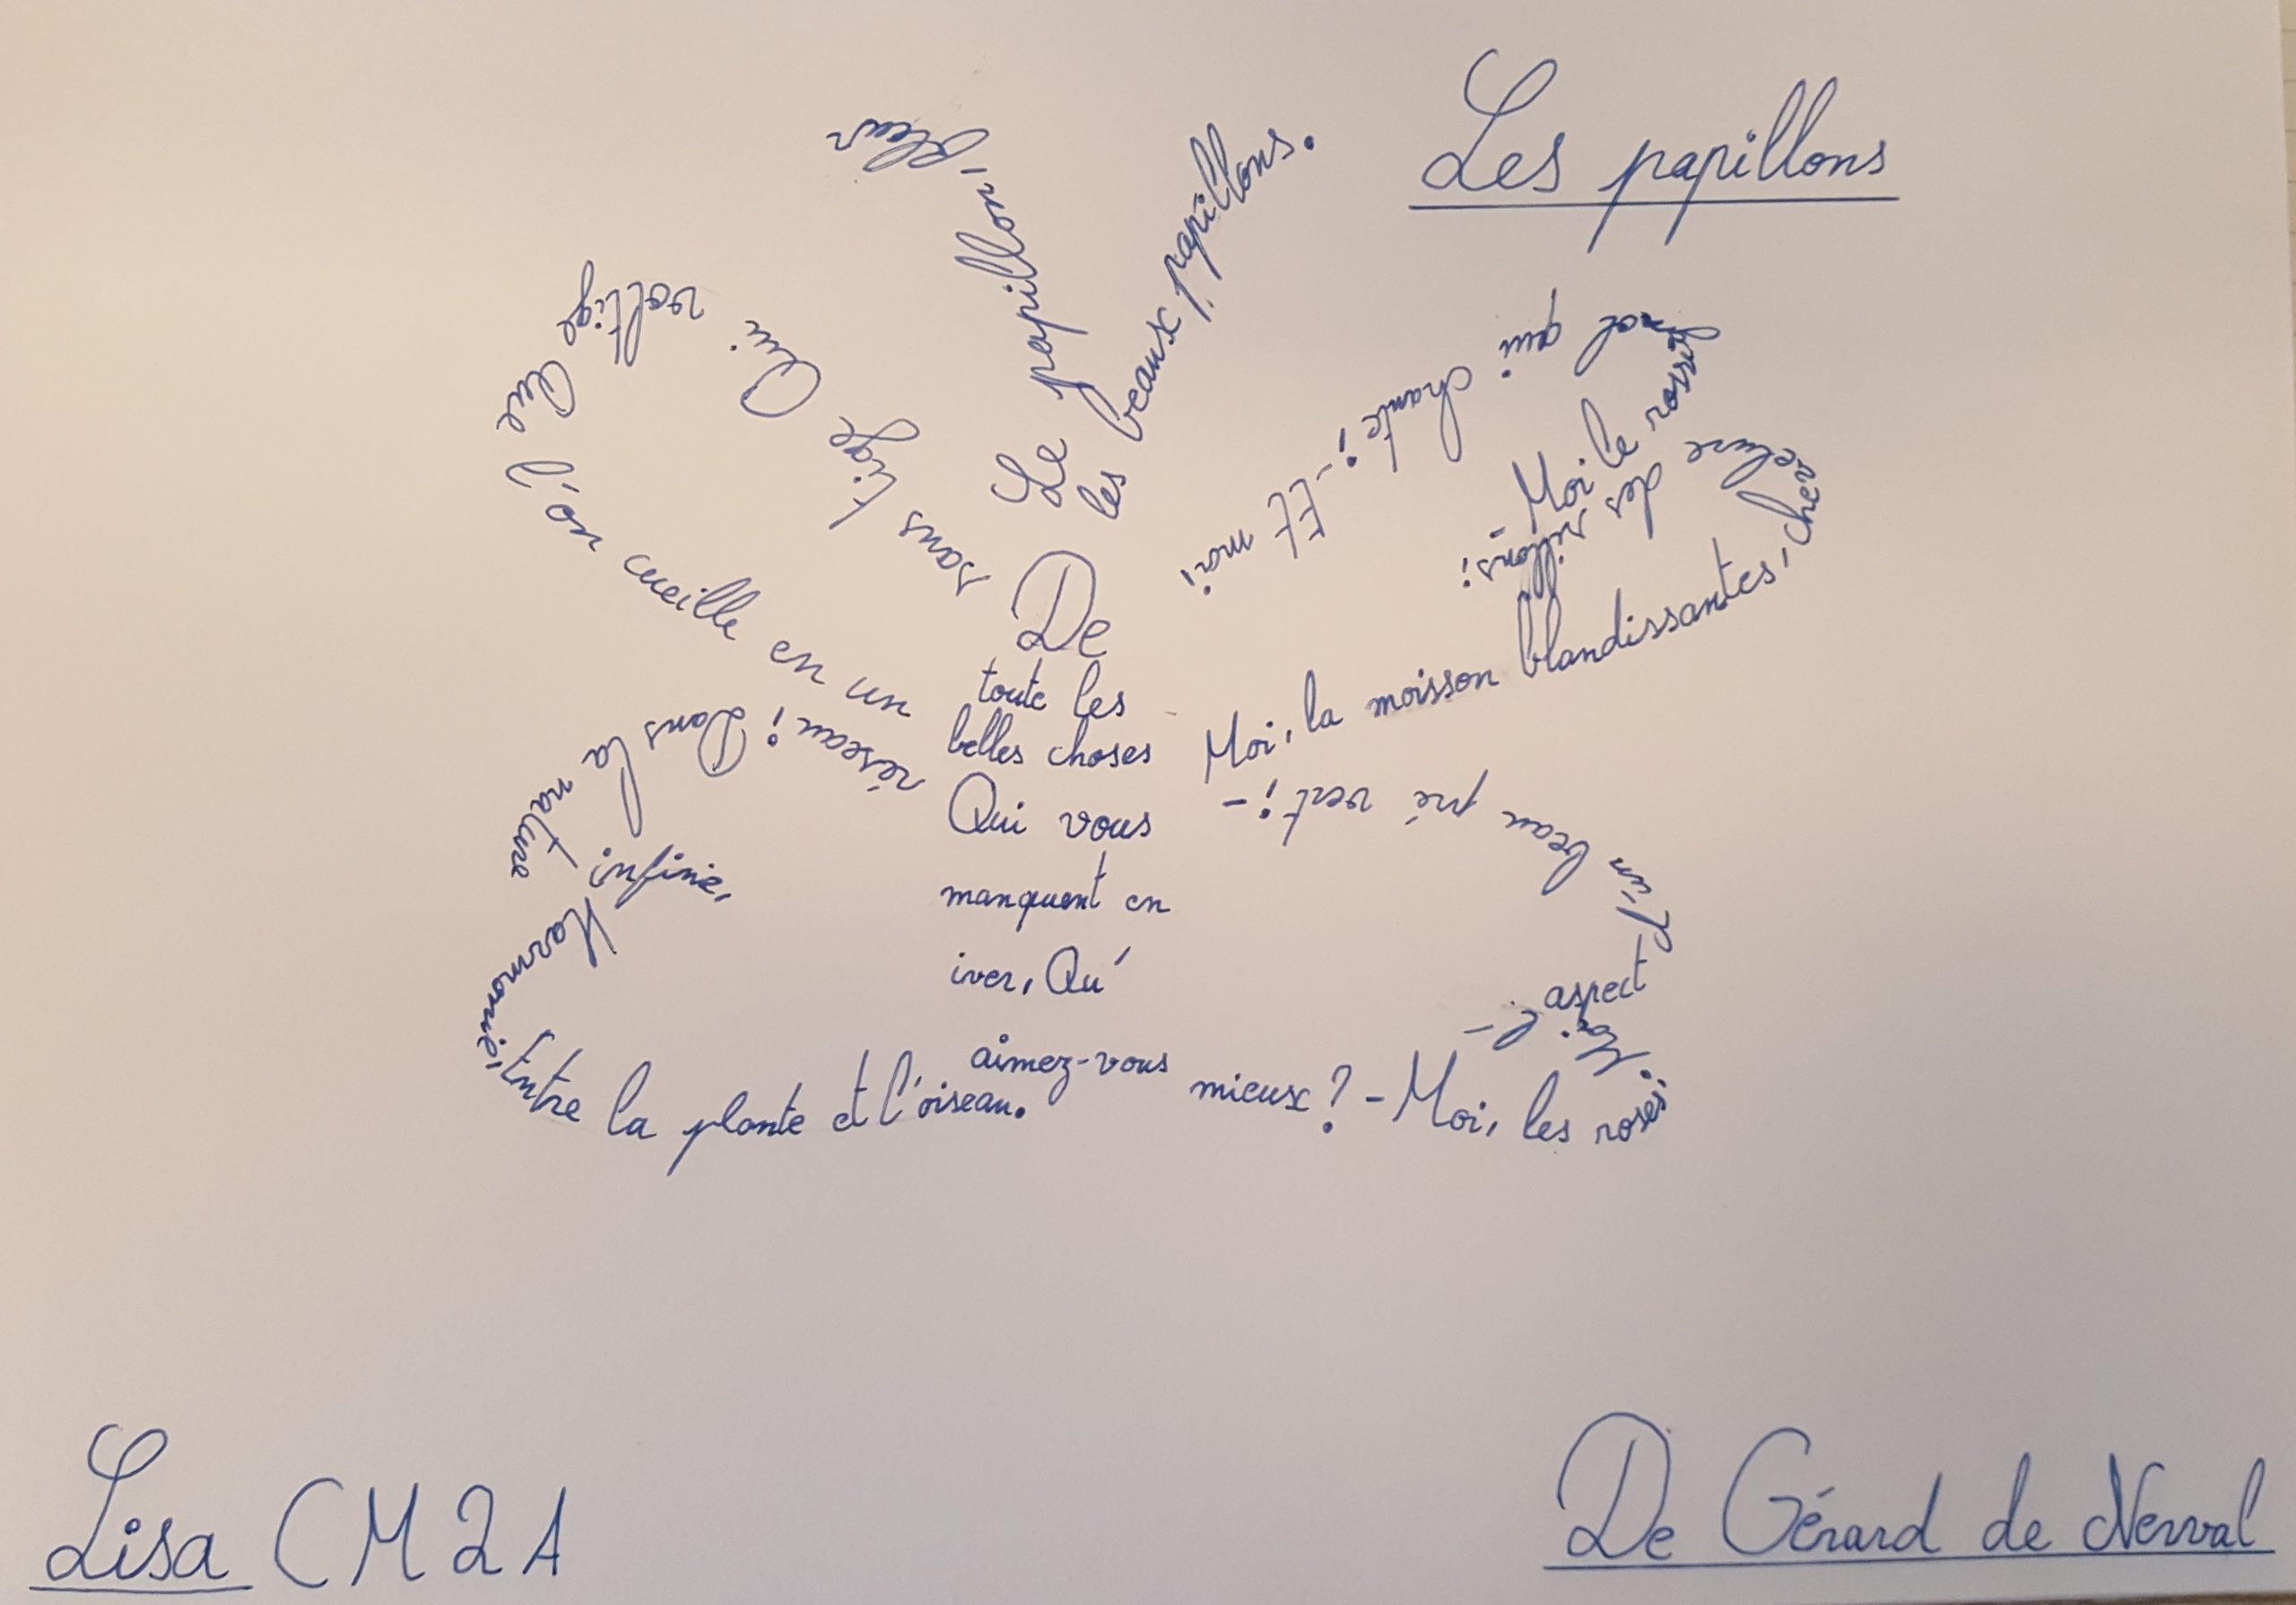 Les papillons
De
toute les
belles choses
Qui vous
manquent en
iver, Qu'
aimez-vous
mieux? - Moi, les roses;
- Moi, l'
aspect
d'un beau pré vert; -
Moi, la moisson blandissantes,
chevelure
des sillons;
- Moi, le rossignol
qui chante; - Et moi
les beaux papillons.
Le papillon, fleur
sans tige Qui voltige
Que l'on cueille en un
réseau; Dans la nature
infinie,
Harmonie,
Entre la plante et l'oiseau.
Lisa CM2A
De Gérard de Nerval